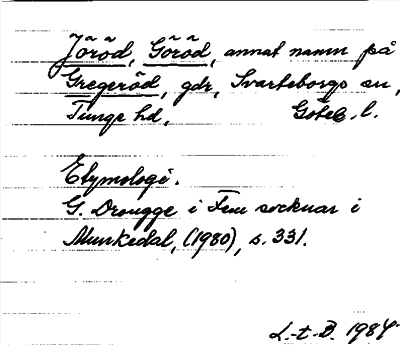 Jöröd, Göröd, annat namn på
Gregeröd, gdr, Svarteborgs sn,
Tunge hd, Göteb. l.
Etymologi.
G. Drougge i Fem socknar i
Munkedal, (1980), s. 331.
L.-t. B. 1984